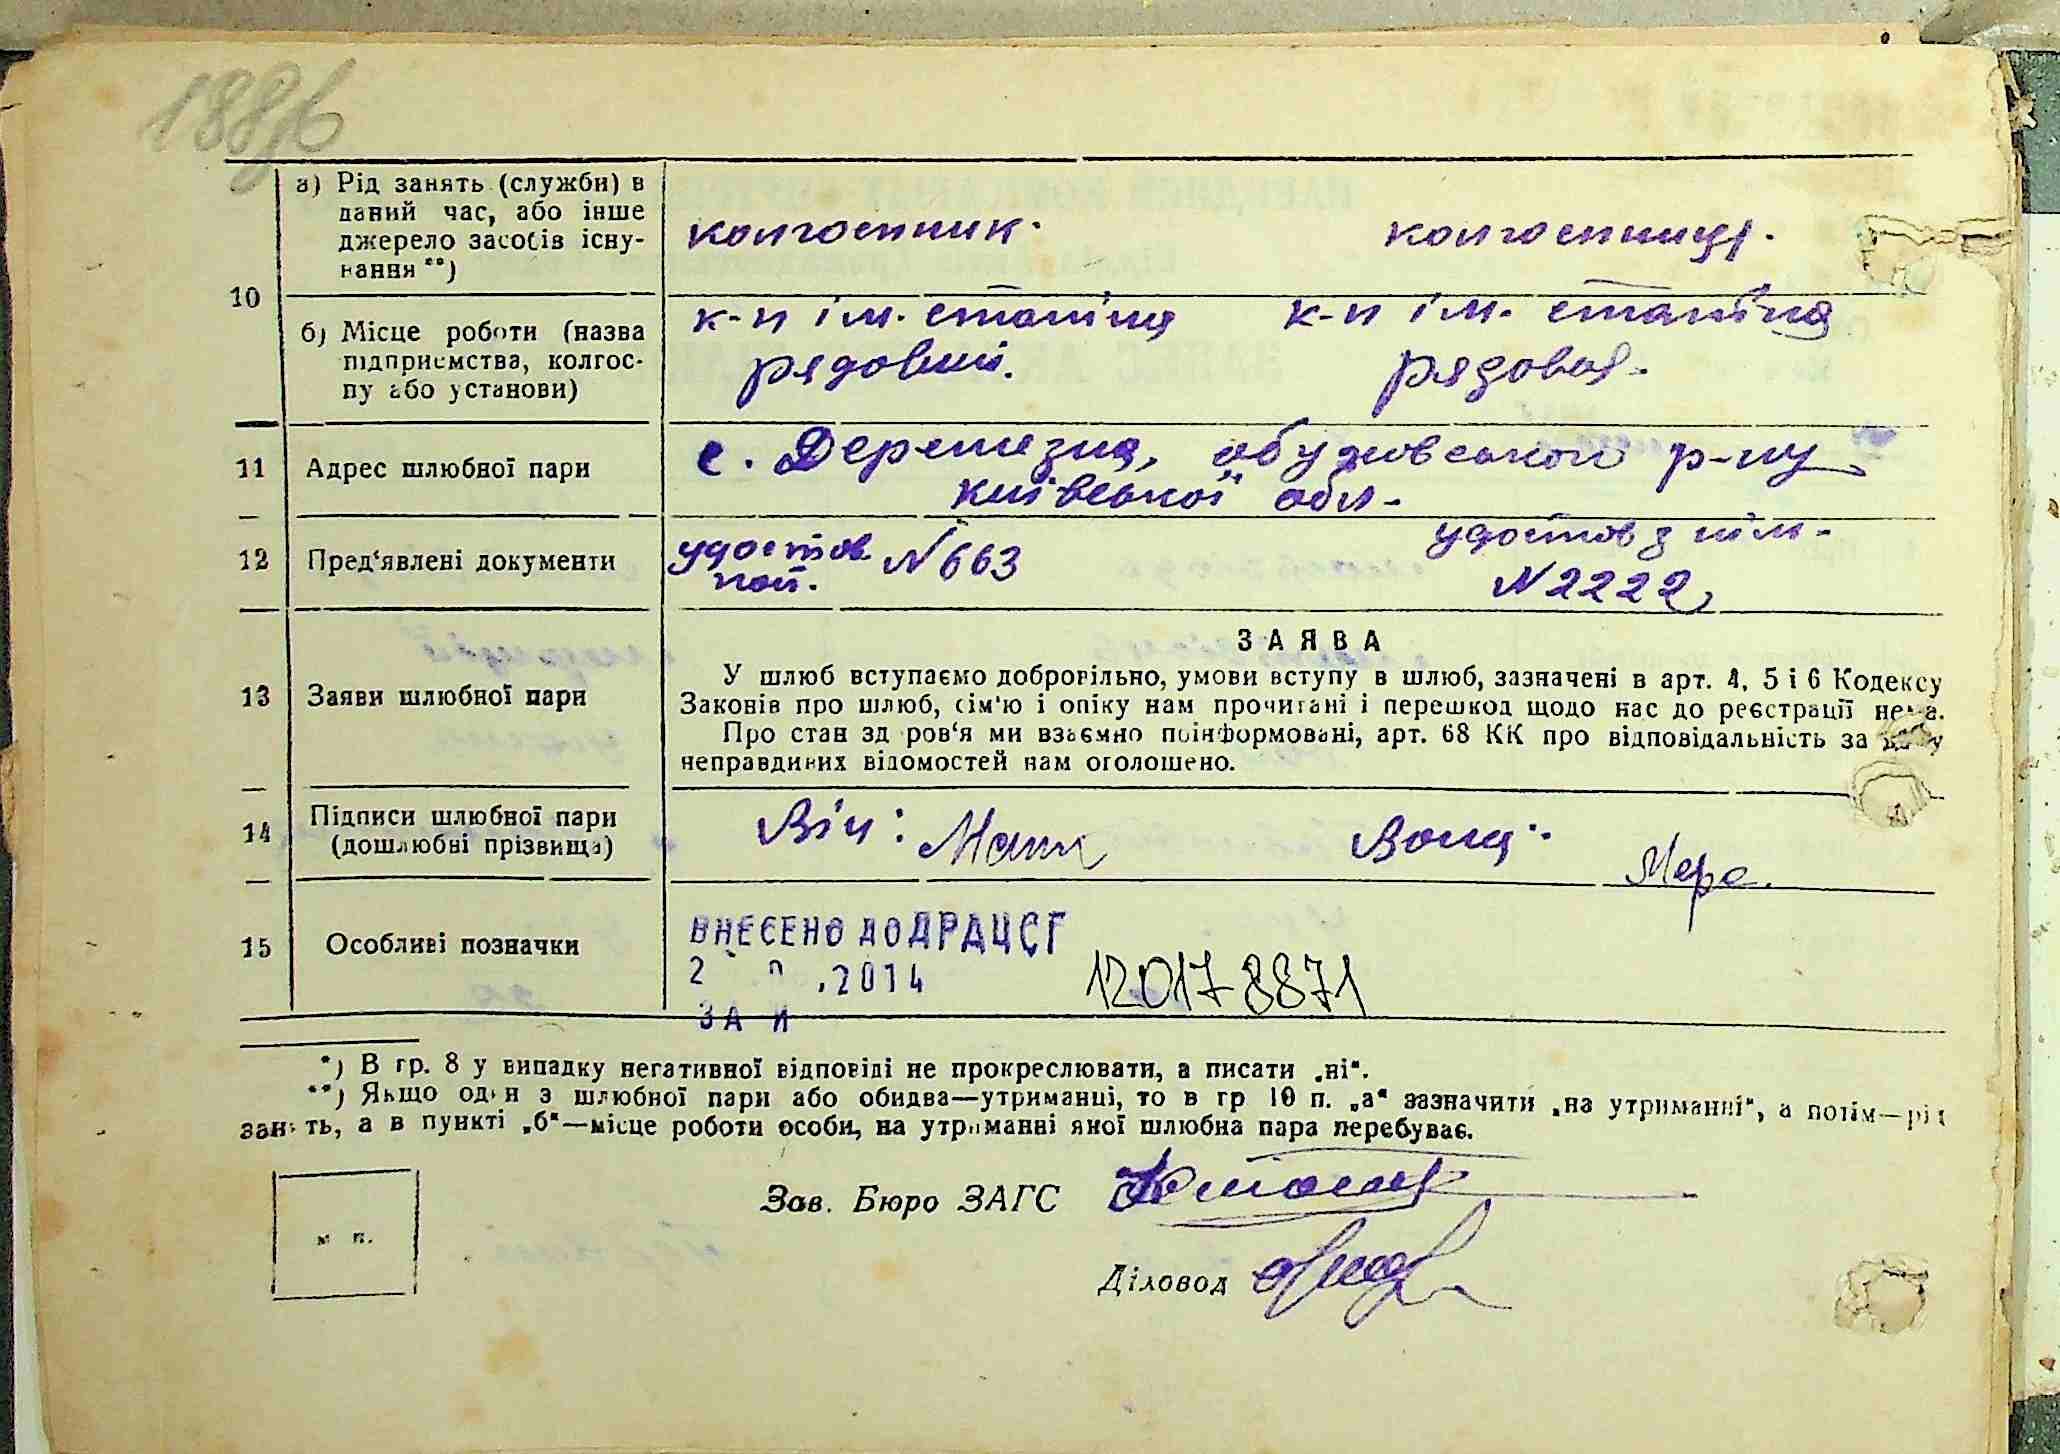 188
10
а) Рід занять (служби) в
даний час, або інше
джерело засобів існу-
вання **)
колгоспник. колгоспниця.
б) Місце роботи (назва
підприємства, колгос-
пу або установи)
к-п ім. сталіна к-п ім. сталіна
рядовий. рядова.
11 Адрес шлюбної пари
с. Деремезна, обухівського р-ну
київської обл.
12 Пред'явлені документи
удостов. №663 удостов з
№2222
ЗАЯВА
13 Заяви шлюбної пари
У шлюб вступаємо добровільно, умови вступу в шлюб, зазначені в арт. 4, 5 і 6 Кодексу
Законів про шлюб, сім'ю і опіку нам прочитані і перешкод щодо нас до реєстрації нема.
Про стан здоров'я ми взаємно поінформовані, арт. 68 КК про відповідальність за дачу
неправдивих відомостей нам оголошено.
14 Підписи шлюбної пари
(дошлюбні прізвища)
Він: Вона:
15 Особливі позначки
ВНЕСЕНО ДО ДРАЦСГ
2 .2014 12017 8871
ЗА
*) В гр. 8 у випадку негативної відповіді не прокреслювати, а писати „ні“.
**) Якщо один з шлюбної пари або обидва—утриманці, то в гр 10 п. „а“ зазначити „на утриманні“, а потім—рід
занять, а в пункті „б“—місце роботи особи, на утриманні якої шлюбна пара перебуває.
Зав. Бюро ЗАГС
м п.
Діловод